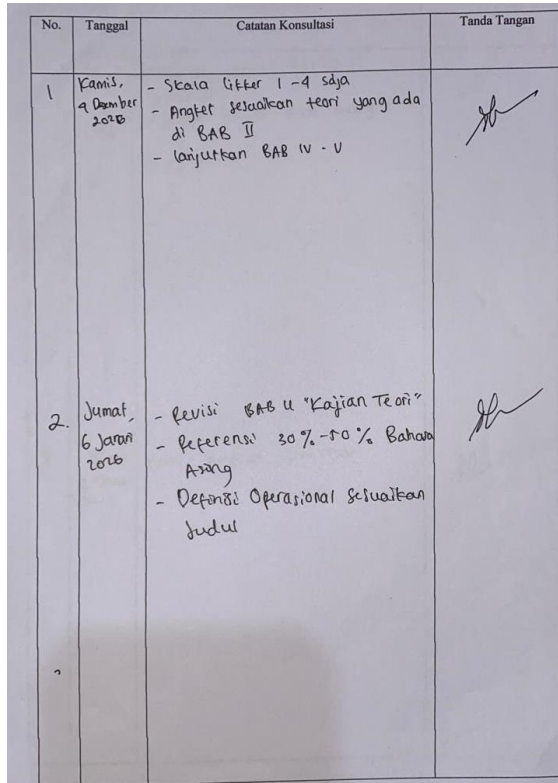 No. Tanggal Catatan Konsultasi Tanda Tangan
1 Kamis, - Skala likker 1 - 4 saja
4 Desember - Angket sesuaikan teori yang ada
di BAB II
- lanjutkan BAB IV - V
2. Jumat, - Revisi BAB II "Kajian Teori"
6 - Referensi 30 % - 50 % Bahasa
2026 Asing
- Definisi Operasional Sesuaikan
Judul